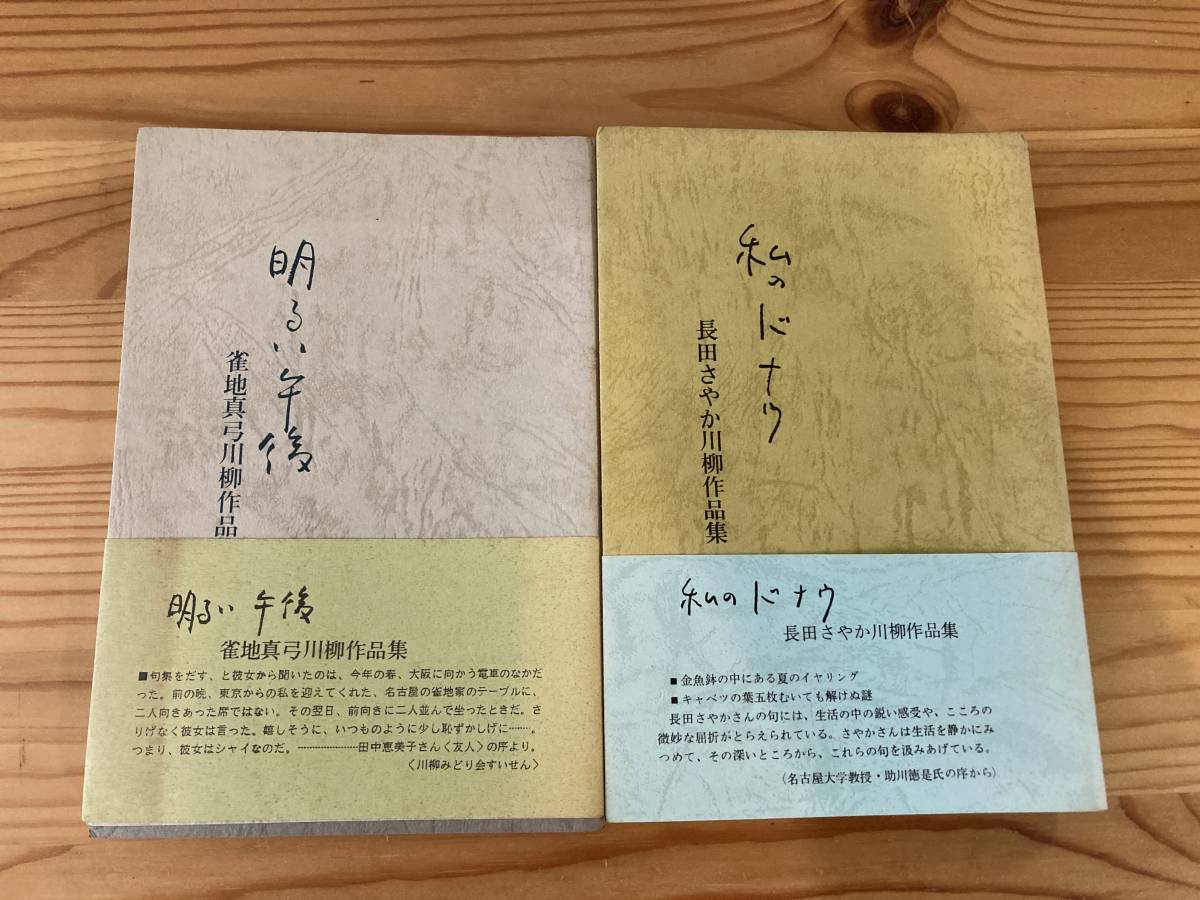 明るい午後
雀地真弓川柳作品
明るい午後
雀地真弓川柳作品集
■句集をだす、と彼女から聞いたのは、今年の春、大阪に向かう電車のなかだ
った。前の晩、東京からの私を迎えてくれた、名古屋の雀地家のテーブルに、
二人向きあった席ではない。その翌日、前向きに二人並んで坐ったときだ。さ
りげなく彼女は言った。嬉しそうに、いつものように少し恥ずかしげに……。
つまり、彼女はシャイなのだ。…………田中恵美子さん〈友人〉の序より。
〈川柳みどり会すいせん〉
私のドナウ
長田さやか川柳作品集
私のドナウ
長田さやか川柳作品集
■金魚鉢の中にある夏のイヤリング
■キャベツの葉五枚むいても解けぬ謎
長田さやかさんの句には、生活の中の鋭い感受や、こころの
微妙な屈折がとらえられている。さやかさんは生活を静かにみ
つめて、その深いところから、これらの句を汲みあげている。
（名古屋大学教授・助川徳是氏の序から）